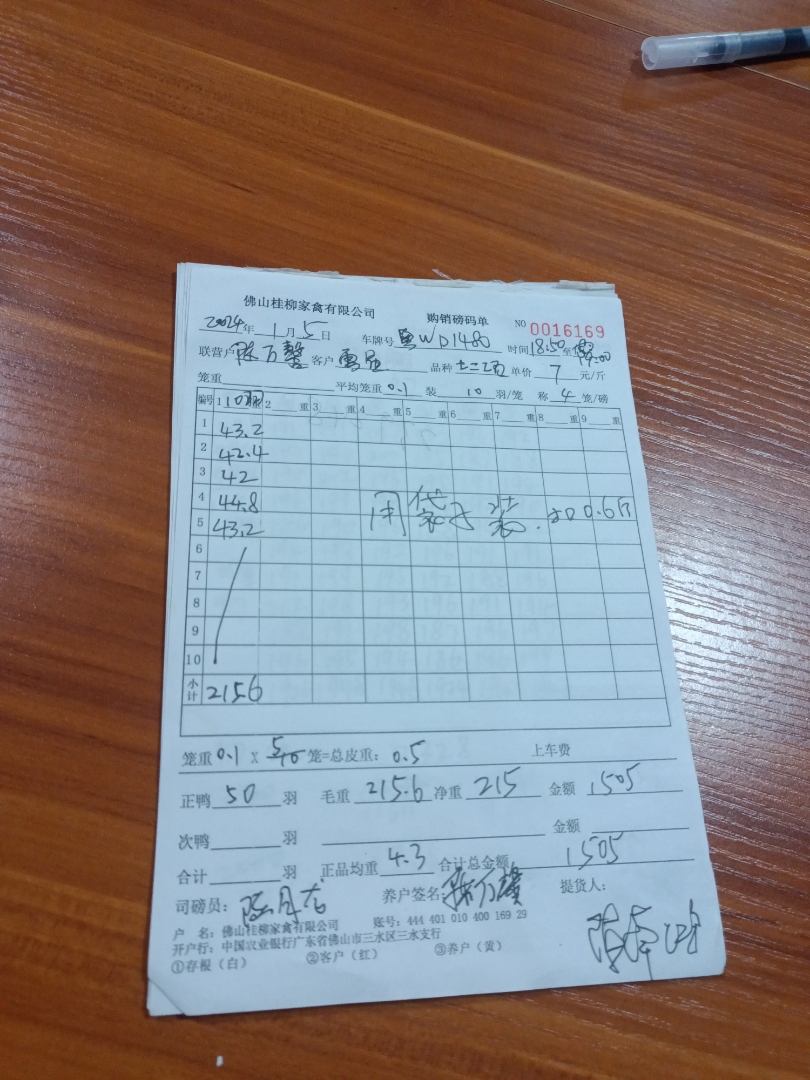 佛山桂柳家禽有限公司 购销磅码单 NO 0016169
2024年 1月 5日 车牌号 粤WD1480 时间18.50至19.00
联营户 万馨 客户 品种 单价 7 元/斤
笼重 平均笼重 0.1 装 10 羽/笼 称 4 笼/磅
编号 1 10羽 重 2 重 3 重 4 重 5 重 6 重 7 重 8 重 9 重
1 43.2
2 42.4
3 42
4 44.8 用袋子装. 扣0.6斤
5 43.2
6
7
8
9
10
小计 215.6
笼重 0.1 X 5 10 笼=总皮重: 0.5 上车费
正鸭 50 羽 毛重 215.6 净重 215 金额 1505
次鸭 羽 金额
合计 羽 正品均重 4.3 合计总金额 1505
司磅员: 养户签名: 万馨 提货人:
户 名: 佛山桂柳家禽有限公司 账号: 444 401 010 400 169 29
开户行: 中国农业银行广东省佛山市三水区三水支行
①存根（白） ②客户（红） ③养户（黄）